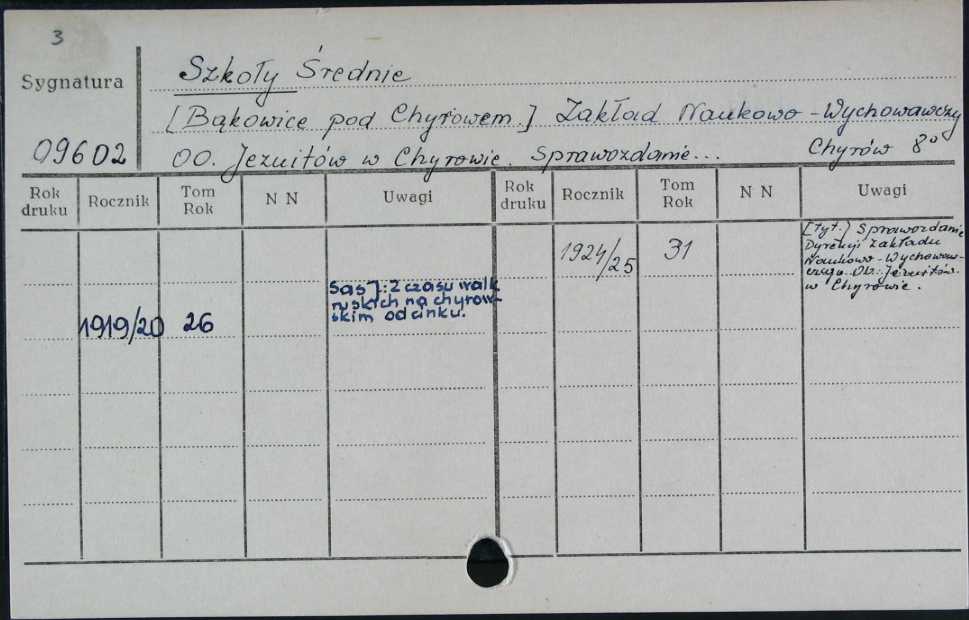 3
Sygnatura
09602
Szkoły Średnie
[Bąkowice pod Chyrowem.] Zakład Naukowo-Wychowawczy
OO. Jezuitów w Chyrowie. Sprawozdanie... Chyrów 8°
Rok druku Rocznik Tom Rok N N Uwagi Rok druku Rocznik Tom Rok N N Uwagi
1924/25 31
[Tyt.] Sprawozdanie
Dyrekcji Zakładu
Naukowo-Wychowaw-
czego OO. Jezuitów
w Chyrowie.
1919/20 26
Sas J.: Z czasu walk
ruskich na chyrow-
skim odcinku.